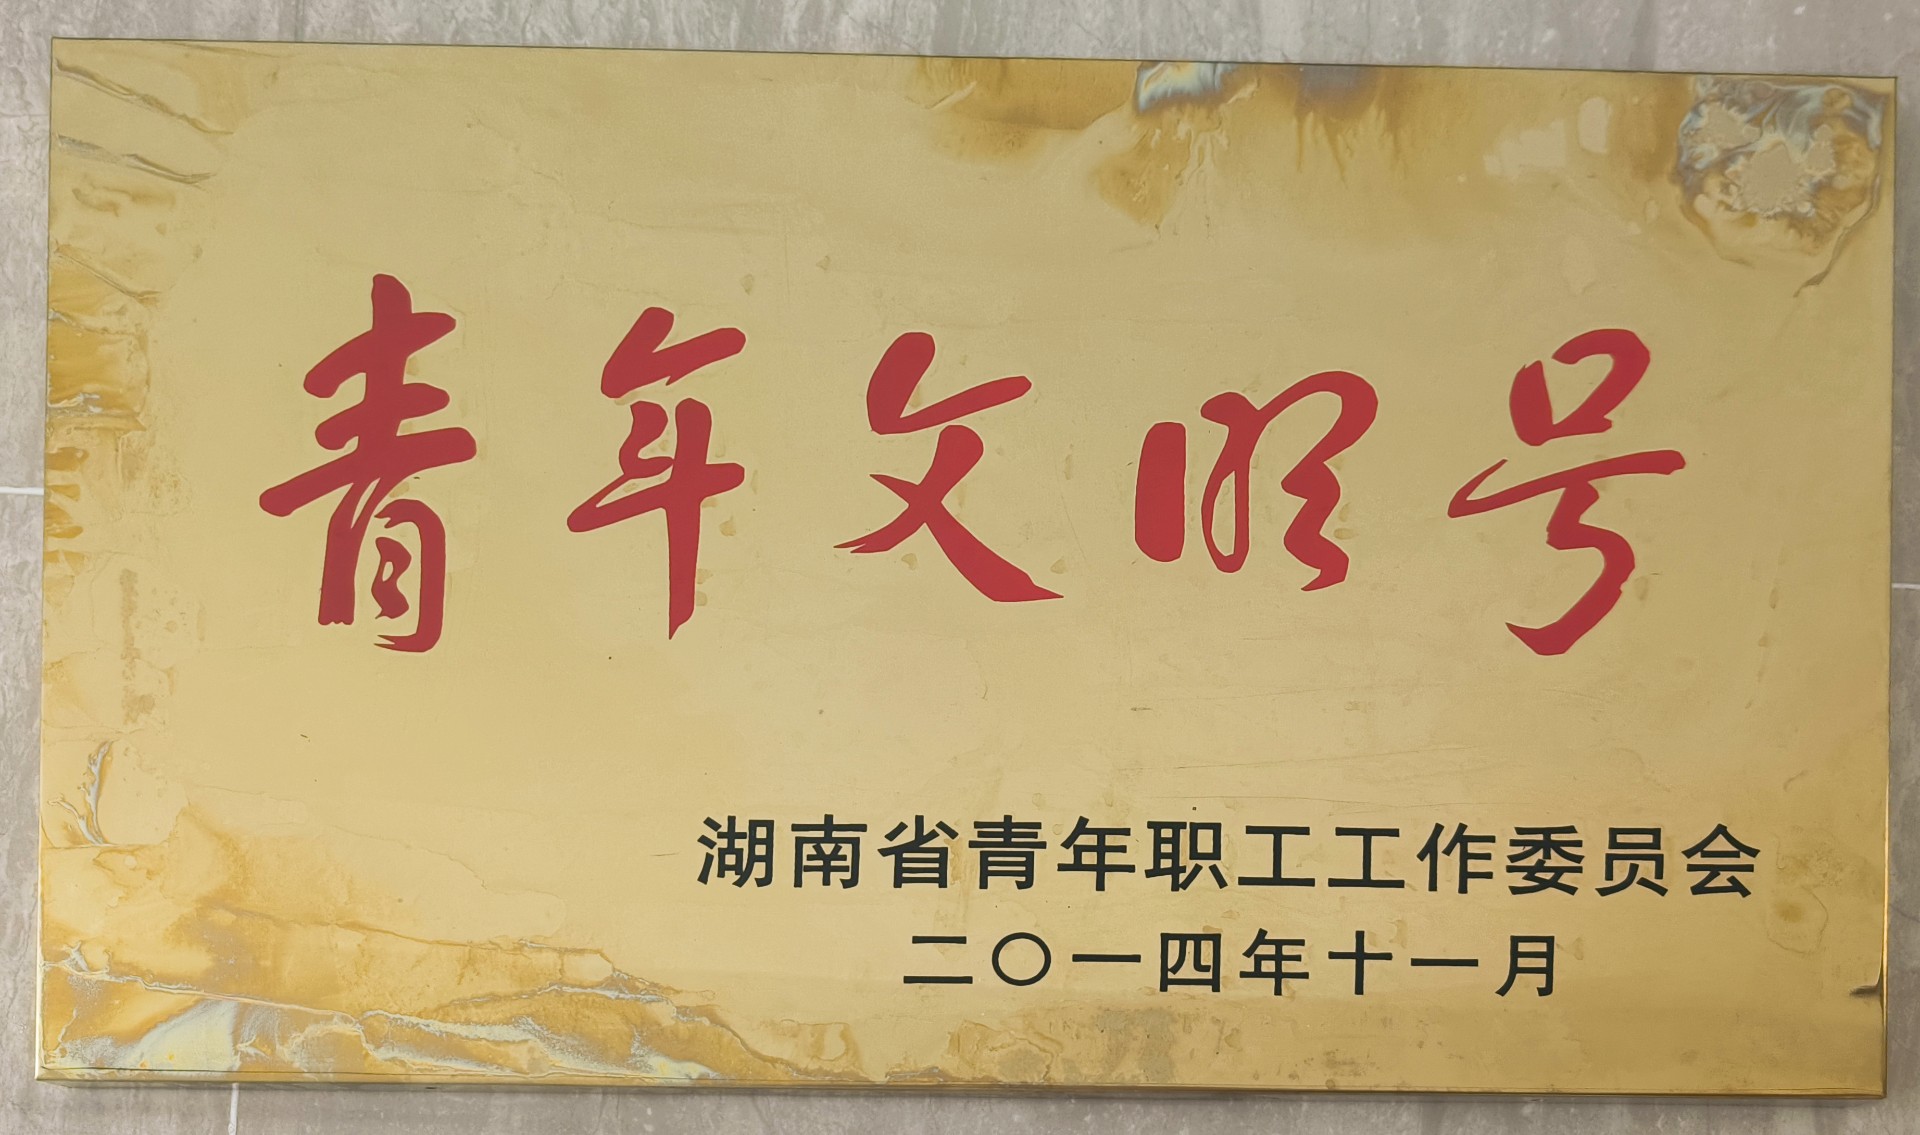 青年文明号
湖南省青年职工工作委员会
二〇一四年十一月